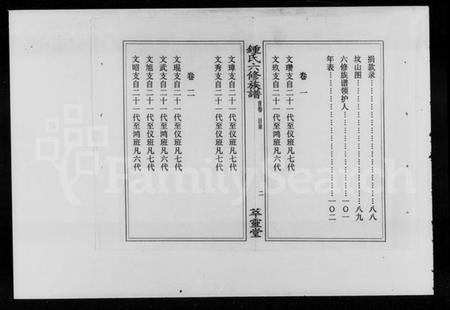 捐款录………………八八
坟山图………………八九
六修族谱领护人………………一〇一
年表………………一〇二
卷一
文瓒支自二十一代至仪班凡七代
文玖支自二十一代至鸿班凡六代
鍾氏六修族譜
首卷 目录
二
萃靈堂
文璋支自二十一代至仪班凡七代
文秀支自二十一代至仪班凡七代
卷二
文琨支自二十一代至仪班凡七代
文武支自二十一代至鸿班凡六代
文旭支自二十一代至仪班凡七代
文昭支自二十一代至鸿班凡六代
FamilySearch